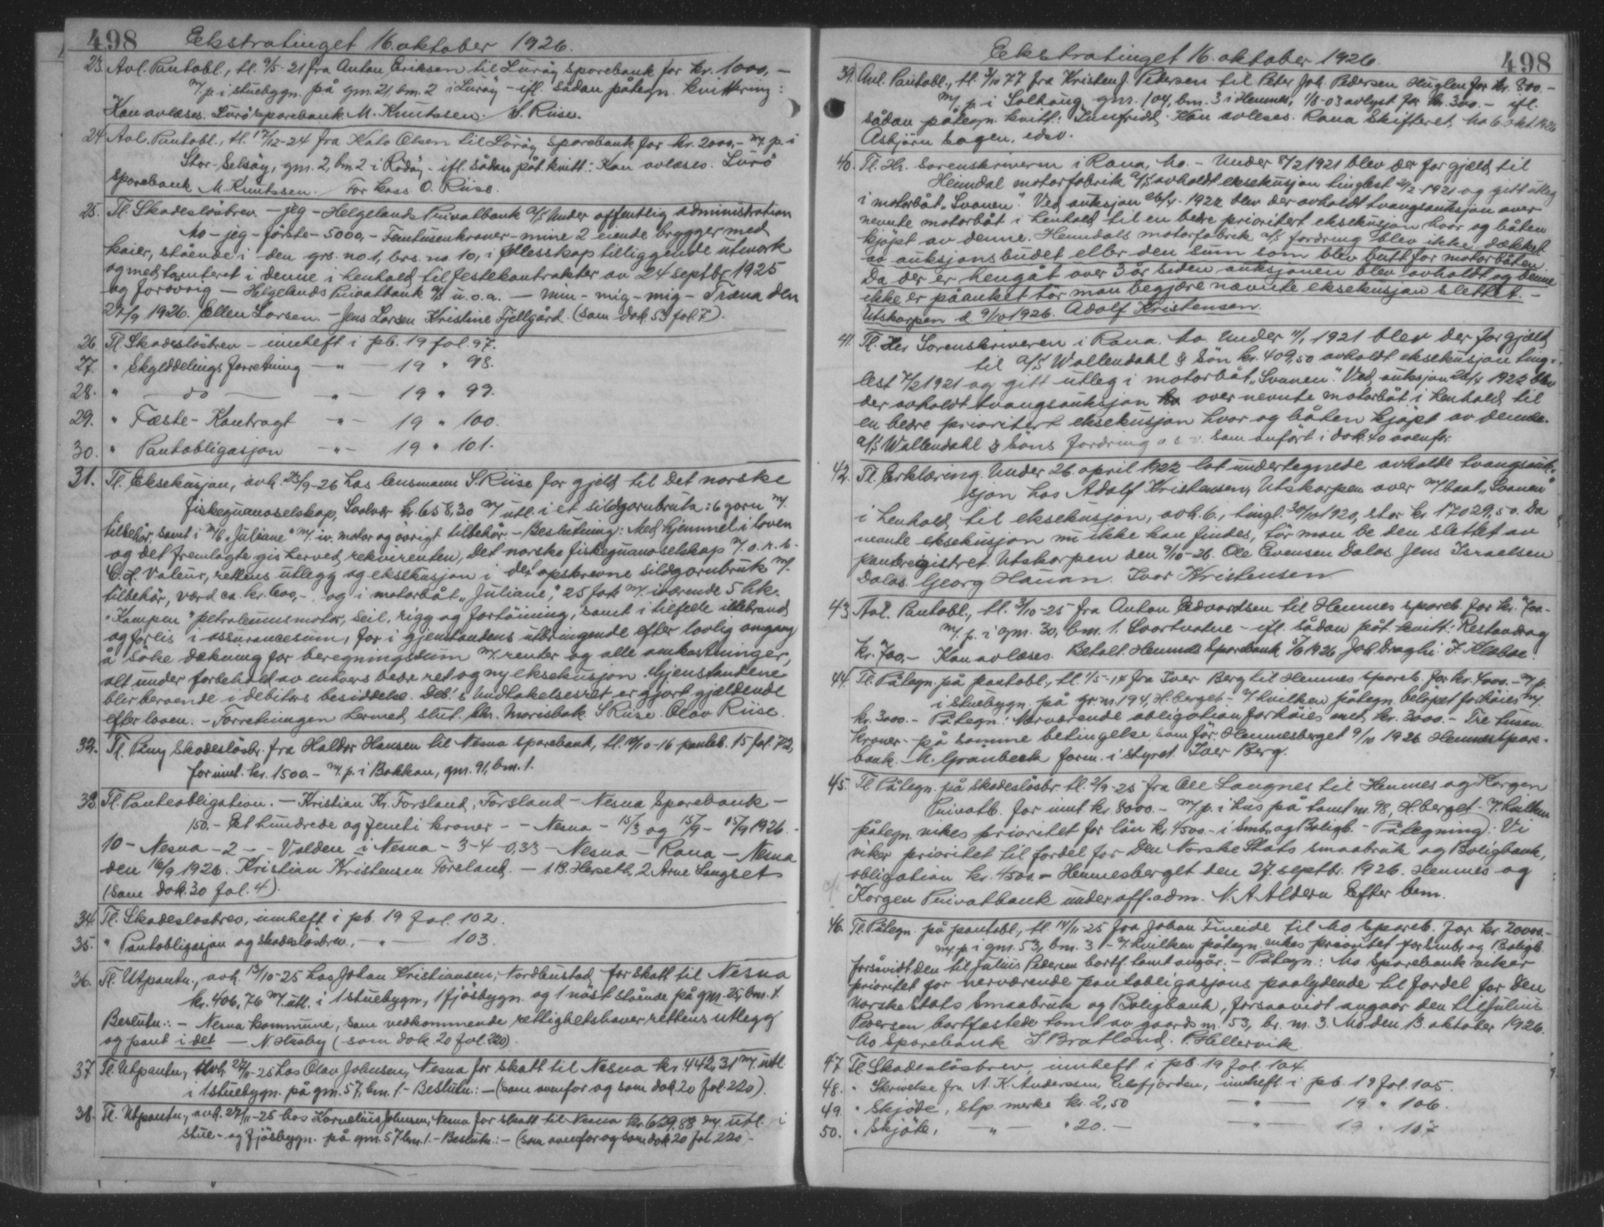 498 Ekstratinget 16 oktober 1926.
23. Avl. Pantobl., tl. 9/5-21 fra Anton Eriksen til Lurøy Sparebank for kr. 1000,-
m/p i stuebygn. på gnr. 21, bm. 2 i Lurøy - ifl. sådan påtegn. kvittering:
Kan avlæses. Lurø Sparebank M. Knutssen. S. Riise.
24. Avl. Pantobl., tl. 17/12-24 fra Kato Olsen til Lurøy Sparebank for kr. 2000,- m/p i
Stor-Selsøy, gnr. 2, bn 2 i Rødøy - ifl. sådan påt. kvitt: Kan avlæses. Lurø
Sparebank M. Knutssen. For kass O. Riise.
25. Tl. Skadesløsbrev - jeg - Helgelands Privatbank A/S Under offentlig administration
Mo - jeg - første - 5000, - Femtusenkroner - mine 2 eiende brygger med
kaier, stående i den grs. no 1, brs. no 10, i fællesskap tilliggende utmark
og med tomteret i denne i henhold til festekontrakter av 24 septbr 1925
og forøvrig - Helgelands Privatbank A/S u.o.a. - min - mig - mig - Træna den
27/9 1926. Ellen Larsen - Jens Larsen Kristine Fjellgård. (Som dok 53 fol 7).
26 Tl. Skadesløsbrev - innheft i pb. 19 fol 97.
27. " Skylddelingsforretning - " - 19 " 98.
28. " - do - " - 19 " 99.
29. " Fæste-Kontragt - " - 19 " 100.
30. " Pantobligasjon - " - 19 " 101.
31. Tl. Eksekusjon, avh. 23/9-26 hos lensmann S Riise for gjeld til Det norske
fiskeguanoselskap, Svolvær kr 658,30 m/ utl. i et sildgarnbruk: 6 garn m/
tilbehør, samt i m/b "Juliane" m/ iv. motor og øvrigt tilbehør - Beslutning: Med hjemmel i loven
og det fremlagte gis herved rekvirenten, Det norske fiskeguanoselskap m/ o.r.s.
C. H. Valeur, rettens utlegg og eksekusjon i det opskrevne sildgarnbruk m/
tilbehør, værd ca. kr. 600,- og i motorbåt "Juliane", 25 fot m/ iværende 5 hk.
"Kampen" petroleumsmotor, seil, rigg og fortøining, samt i tilfelle ildebrand
og forlis i assurancesum, for i gjenstandens utbringende efter lovlig omgang
å søke dækning for beregningssum m/ renter og alle omkostninger,
alt under forbehold av enhvers bedre ret og ny eksekusjon. Gjenstandene
blir beroende i debitors besiddelse. Deb's undtakelsesret er gjort gjældende
efter loven. - Forretningen hermed slut. Chr. Morisbak S Riise Olav Riise.
32. Tl. Pånny Skadesløsbr. fra Haldor Hansen til Nesna Sparebank, tl. /10-16 panteb. 15 fol. 72,
for innt. kr. 1500.- m/p. i Bakkan, gnr. 91, bm. 1.
33. Tl. Panteobligation. - Kristian Kr. Forsland, Forsland - Nesna Sparebank -
150.- Et hundrede og femti kroner - - Nesna - 15/3 og 15/9 - 15/9 1926 -
10 - Nesna - 2 - - Valden i Nesna - 3-4 0,33 - Nesna - Rana - Nesna
den 16/9 1926. Kristian Kristensen Forsland - 1 B. Herseth, 2 Arne Langset
(Som dok. 30 fol. 4)
34. Tl. Skadesløsbrev, innheft i pb. 19 fol 102.
35. " Pantobligasjon og skadesløsbrev, - " - 103.
36. Tl. Utpantn., avh. 13/10-25 hos Johan Kristiansen, Nordbustad for skatt til Nesna
kr. 406,76 m/ utl. i 1 stuebygn, 1 fjøsbygn. og 1 nøst stående på gnr. 25, bm. 4.
Beslutn.: - Nesna kommune, som vedkommende rettighetshaver rettens utlegg
og pant i det - N. Høsby (som dok 20 fol 220).
37. Tl. Utpantn., avh. 27/11-25 hos Olav Johnsen, Nesna for skatt til Nesna kr. 442,31 m/ utl
i 1 stuebygn. på gnr. 57, bm. 1 - Beslutn: - (som ovenfor og som dok 20 fol 220).
38. Tl. Utpantn., avh. 27/11-25 hos Kornelius Johnsen, Nesna for skatt til Nesna kr. 659,88 m/ utl. i
stue- og fjøsbygn. på gnr 57 bm. 1. - Beslutn: - (som ovenfor og som dok 20 fol 220) -
Ekstratinget 16. oktober 1926. 498
39. Avl. Pantobl., tl. /10 77 fra Kristen J. Pedersen til Peter Joh. Pedersen Huglen for kr. 800.-
m/p. i Solhaug gnr. 104, bm. 3 i Hemnes, 1/6-03 avlyst for kr. 300.- ifl.
sådan påtegn. kvitt: Kan avleses. Rana Skifteret, Mo 6 okt 1926
Asbjørn
40. Tl. Hr. Sorenskriveren i Rana, Mo. - Under 8/2 1921 blev der for gjeld til
Heimdal motorfabrik A/S avholdt eksekusjon tinglest /2-1921 og gitt utleg
i motorbåt. Svanen. Ved auksjon 26/4-1922 blev der avholdt tvangsauksjon over
nevnte motorbåt i henhold til en bedre prioritert eksekusjon hvor og båten
kjøpt av denne. Heimdals motorfabrik A/S fordring blev ikke dækket
av auksjonsbudet eller den sum som blev budt for motorbåten.
Da der er hengåt over 3 år siden auksjonen blev avholdt og denne
ikke er påanket tør man begjære nævnte eksekusjon slettet. -
Utskarpen d. 9/10 1926. Adolf Kristensen.
41. Tl. Hr Sorenskriveren i Rana. Mo. Under /1 1921 blev der for gjeld
til A/S Wallendahl & Søn kr. 409,50 avholdt eksekusjon ting-
lest /2 1921 og gitt utleg i motorbåt "Svanen". Ved auksjon 26/4 1922 blev
der avholdt tvangsauksjon over nevnte motorbåt i henhold til
en bedre prioritert eksekusjon hvor og båten kjøpt av denne.
A/S Wallendahl & Søns fordring o.s.v. som anført i dok 40 ovenfr.
42. Tl. Erklæring. Under 26. april 1922 lot undertegnede avholde tvangsauk-
sjon hos Adolf Kristensen, Utskarpen over m/baat "Svanen"
i henhold til eksekusjon, avh. 6, tingl. 30/10 1920, stor kr 17029,50. Da
nevnte eksekusjon nu ikke kan findes, tør man be den slettet av
pantregistret. Utskarpen den 9/10-26. Ole Evensen Dalas Jens Israelsen
Dalas Georg Hauan. Ivar Kristensen
43 Avl. Pantobl., tl. /10-25 fra Anton Edvardsen til Hemnes spareb. for kr. 700-
m/p. i gnr. 30, bm. 1. Svartvatne - ifl. sådan påt. kvitt: Restavdrag
kr. 700,- Kan avlæses. Betalt. Hemnes Sparebank 5/8 1926 Joh Draghi F. Klæboe.
44. Tl. Påtegn. på pantobl., tl. 1/5-14 fra Iver Berg til Hemnes spareb. for kr. 4000.- m/p.
i stuebygn. på gr. nr 194, H.berget - v/ hvilken påtegn beløpet forhøies m/
kr. 3000.- Påtegn: Nærværende obligation forhøies med kr. 3000.- Tre tusen
kroner - på samme betingelse som før. Hemnesberget 9/10 1926 Hemnes Spare-
bank. M. Grønbech form. i styret Iver Berg.
45. Tl Påtegn. på skadesløsbr. tl. 2/9-25 fra Ole Langnes til Hemnes og Korgen
Privatb. for innt kr. 8000.- m/p. i hus på tomt nr. 98, H.berget - v/ hvilken
påtegn vikes prioritet for lån kr. 4500.- i Smbr. og Boligb. - Påtegning: Vi
viker prioritet til fordel for Den Norske Stats smaabruk og Boligbank,
obligation kr. 4500.- Hemnesberget den 27. septbr. 1926. Hemnes og
Korgen Privatbank under off. adm. N. A. Aldern Efter bem.
46. Tl. Påtegn. på pantobl., tl. 14/11-25 fra Johan Fineide til Mo Spareb. for kr. 20000.-
m/p. i gnr. 53, bm. 3 - v/ hvilken påtegn vikes prioritet for Smb. og Boligb.
forsåvidt den til Julius Pedersen bortf. tomt angår. - Påtegn: Mo Sparebank viker
prioritet for nærværende pantobligasjons paalydende til fordel for Den
norske Stats Smaabruk og Boligbank, forsaavidt angaar den til Julius
Pedersen bortfæstede tomt av gaards nr. 53, br. nr. 3. Mo den 13. oktober 1926.
Mo Sparebank J Bratland. P. Hellervik
47. Tl. Skadesløsbrev, innheft i pb. 19 fol. 104.
48. " Skrivelse fra A. K. Andersen, Elsfjorden, innheft i pb. 19 fol. 105.
49. " Skjøde, stp. merke kr. 2,50 - " - 19 " 106.
50. " Skjøte, " - " 20.- - " - 19 " 107